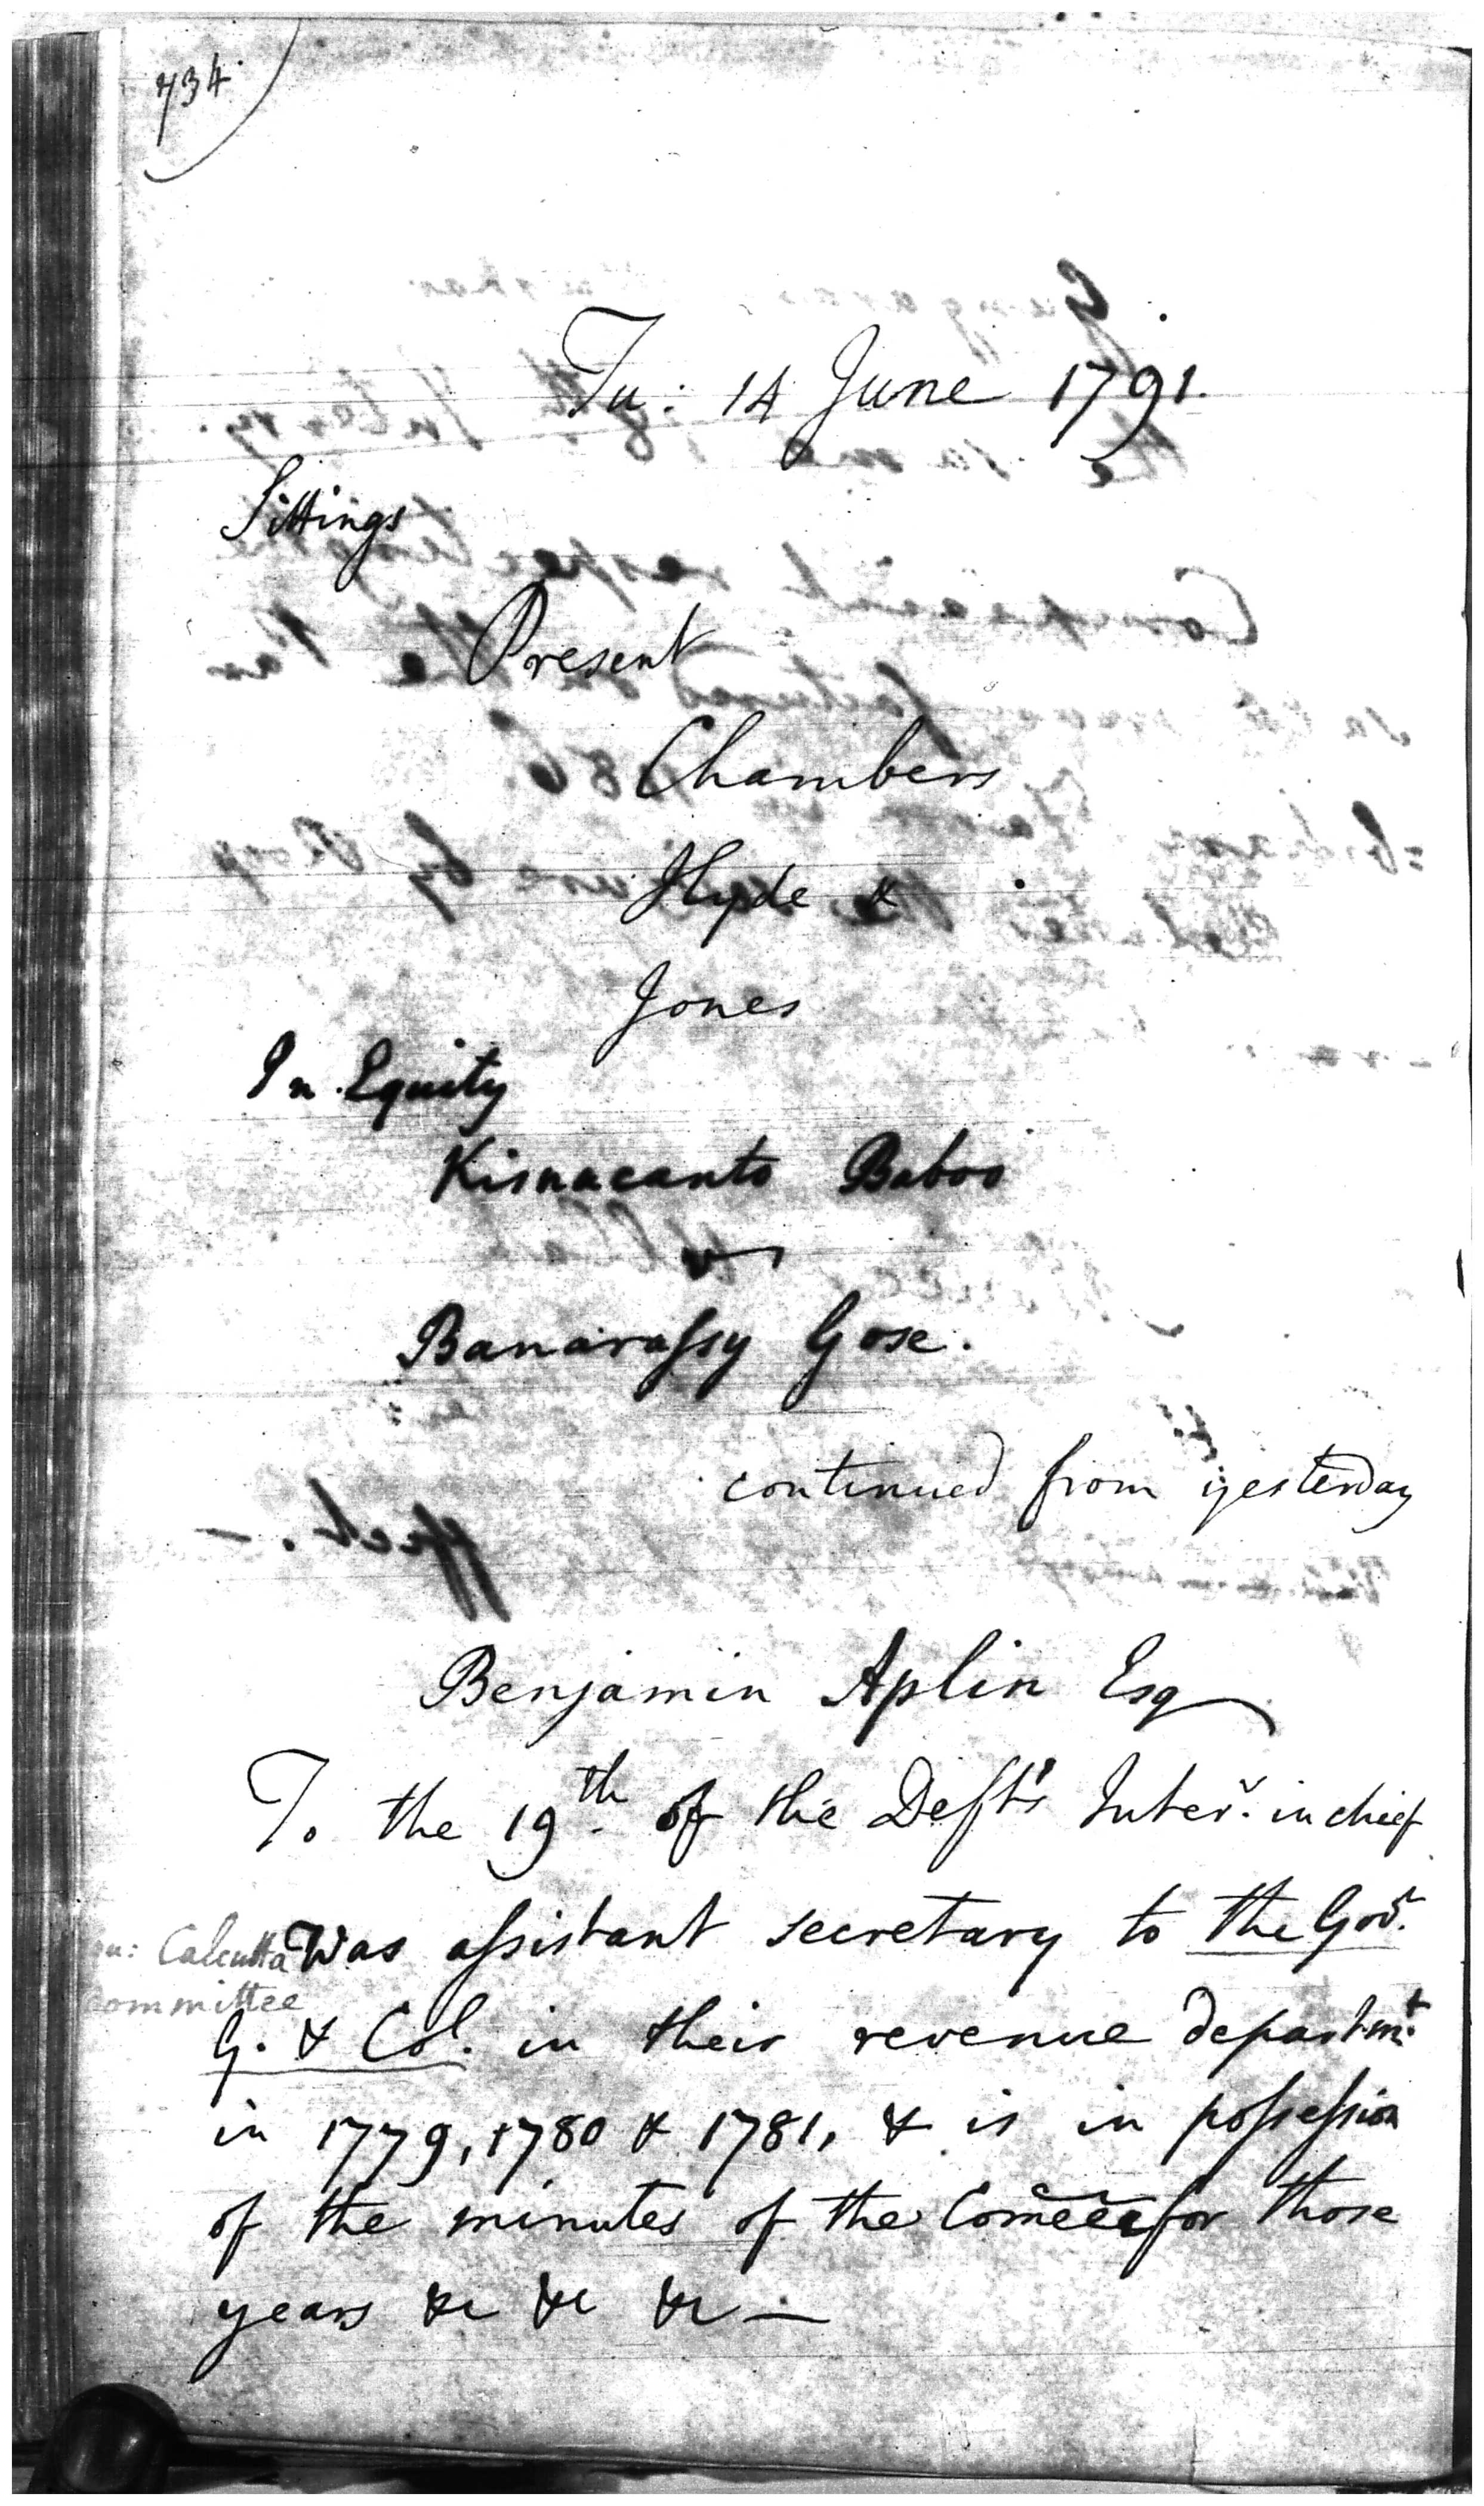 734
Tu: 14 June 1791.
Sittings
Present
Chambers
Hyde &
Jones
In Equity
Kisnacanto Baboo
vs
Banarassy Gose.
continued from yesterday
Benjamin Aplin Esq
To the 19th. of the Deft's Inter. in chief
Was assistant secretary to the Gov.
qu: Calcutta
Committee
G. & Col. in their revenue departmt.
in 1779, 1780 & 1781, & is in possession
of the minutes of the Comee for those
years &c &c &c —